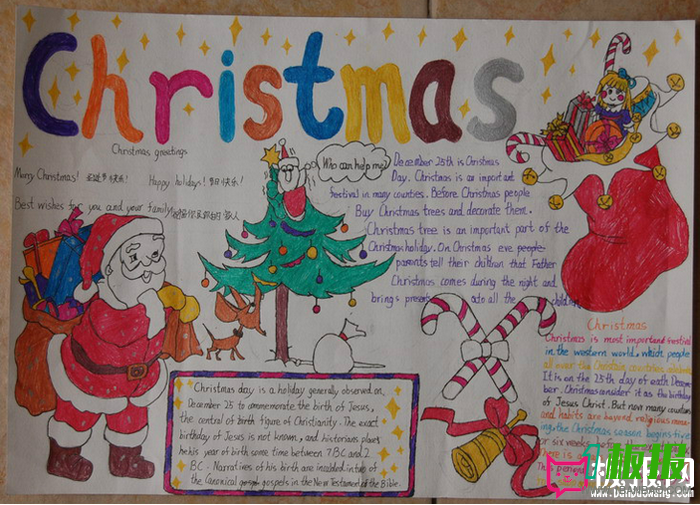 Christmas
Christmas greetings
Merry Christmas! 圣诞节快乐!
Happy holidays! 节日快乐!
Best wishes for you and your family!
Who can help me?
December 25th is Christmas
Day. Christmas is an important
festival in many counties. Before Christmas people
Buy Christmas trees and decorate them.
Christmas tree is an important part of the
Christmas holiday. On Christmas eve people
parents tell their children that Father
Christmas comes during the night and
brings presents to all the children
Christmas day is a holiday generally observed on
December 25 to commemorate the birth of Jesus,
the central of birth figure of Christianity. The exact
birthday of Jesus is not known, and historians
his year of birth some time between 7 BC and 2
BC. Narratives of his birth are in
the Canonical gospels in the New Testament of the Bible.
Christmas
Christmas is most important festival
in the western world, which people
all over the Christian countries
It is on the 25th day of each Decem
ber. Christmas consider it as the birthday
of Jesus Christ. But now many countries
and habits are beyond religious meaning
the Christmas season begins five
or six weeks before
There is a
板报网
www.banbaowang.com